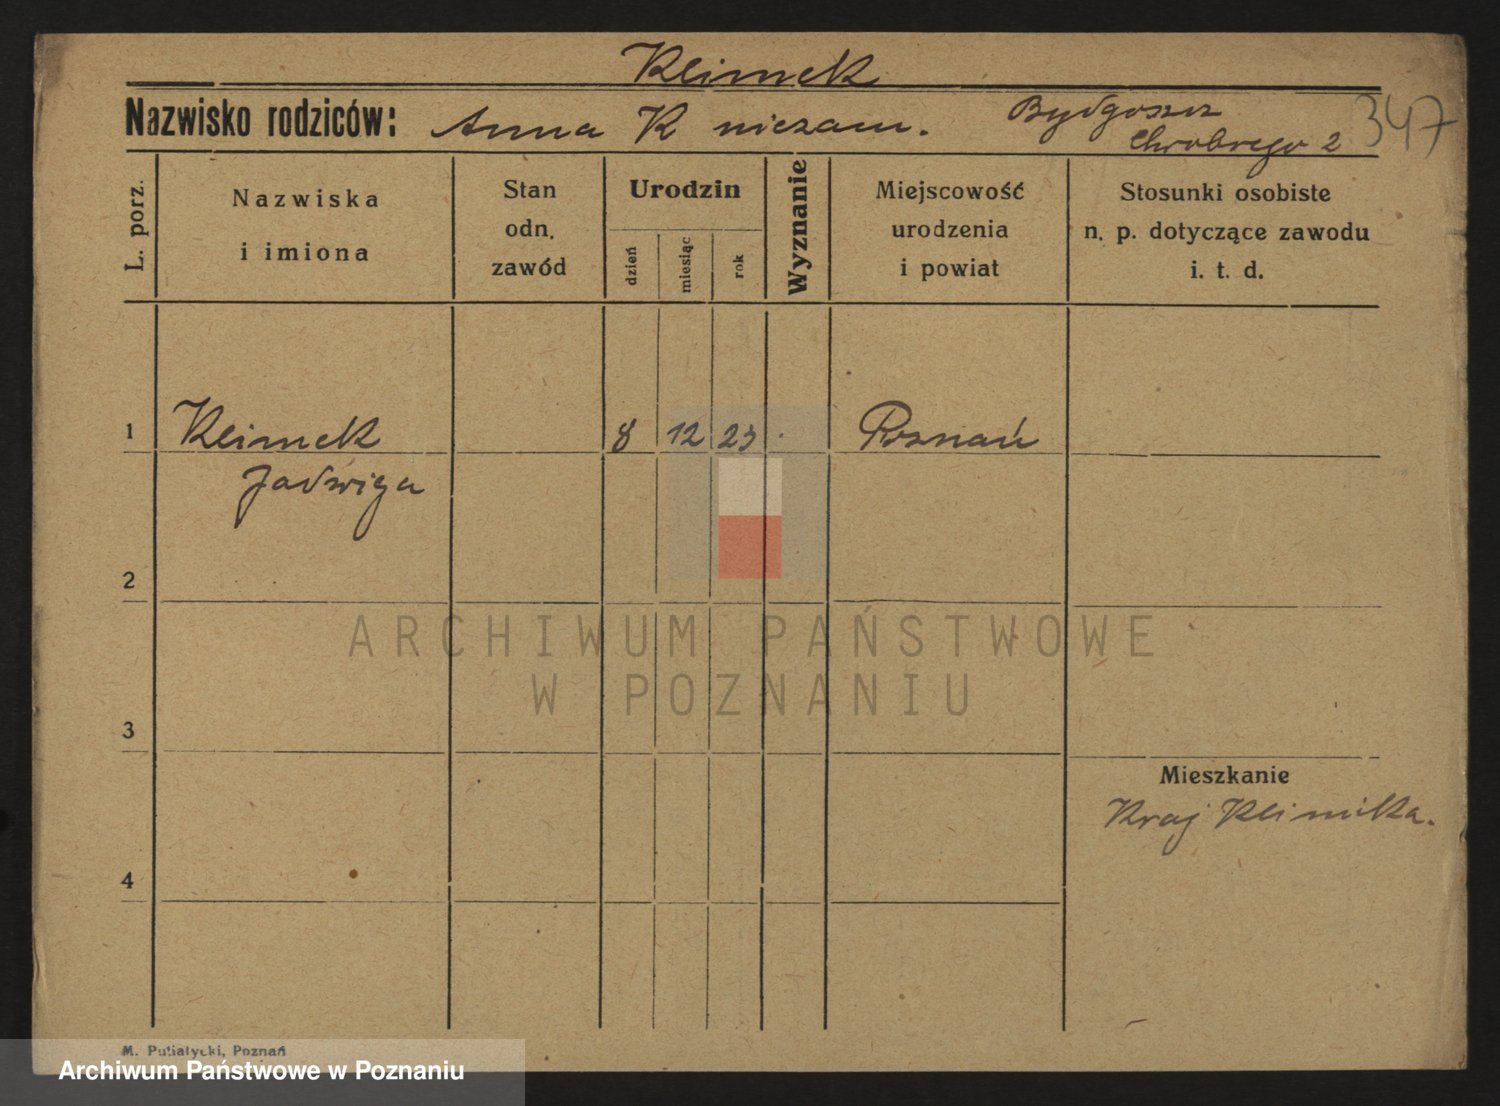 Klimek
Nazwisko rodziców: Anna K niezam. Bydgoszcz
Chrobrego 2
347
L. porz.
Nazwiska
i imiona
Stan
odn.
zawód
Urodzin
dzień
miesiąc
rok
Wyznanie
Miejscowość
urodzenia
i powiat
Stosunki osobiste
n. p. dotyczące zawodu
i. t. d.
1 Klimek 8 12 23 Poznań
Jadwiga
2
ARCHIWUM PAŃSTWOWE
W POZNANIU
3
Mieszkanie
Kraj Klimka.
4
M. Putiatycki, Poznań
Archiwum Państwowe w Poznaniu